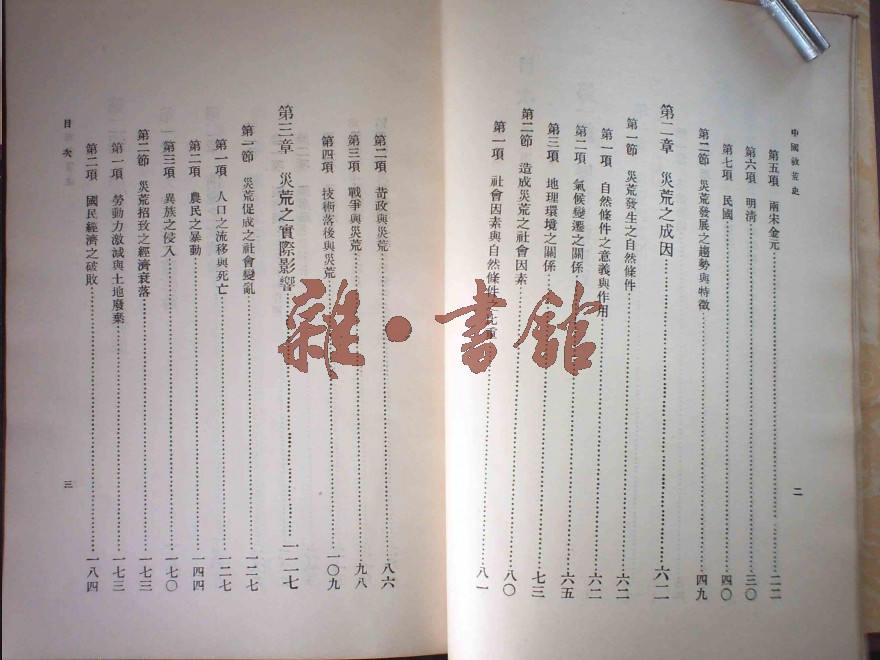 中國救荒史
第五項 兩宋金元……二二
第六項 明清……三〇
第七項 民國……四〇
第二節 災荒發展之趨勢與特徵……四九
第二章 災荒之成因……六二
第一節 災荒發生之自然條件……六二
第一項 自然條件之意義與作用……六二
第二項 氣候變遷之關係……六五
第三項 地理環境之關係……七三
第二節 造成災荒之社會因素……八〇
第一項 社會因素與自然條件之比重……八一
二
第二項 苛政與災荒……八六
第三項 戰爭與災荒……九八
第四項 技術落後與災荒……一〇九
第三章 災荒之實際影響……一二七
第一節 災荒促成之社會變亂……一二七
第一項 人口之流移與死亡……一二七
第二項 農民之暴動……一四四
第三項 異族之侵入……一七〇
第二節 災荒招致之經濟衰落……一七三
第一項 勞動力激減與土地廢棄……一七三
第二項 國民經濟之破敗……一八四
目次
三
雜·書館